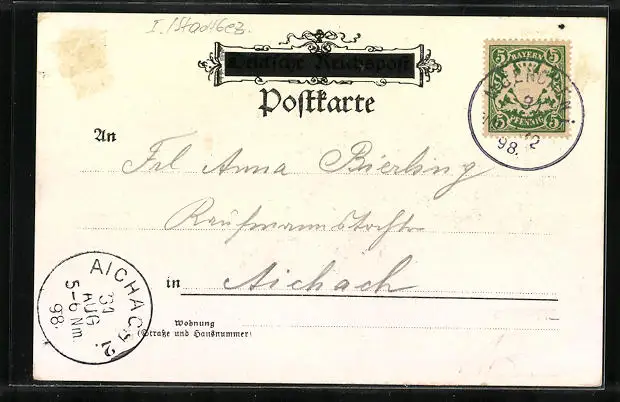 I. /Stadtbez.
Deutsche Reichspost
Postkarte
5 BAYERN 5
5 PFENNIG 5
98.
An
Frl Anna Bierling
Kaufmannstochter
in Aichach
AICHACH 2.
31
AUG
5-6 Nm
98.
Wohnung
(Straße und Hausnummer)